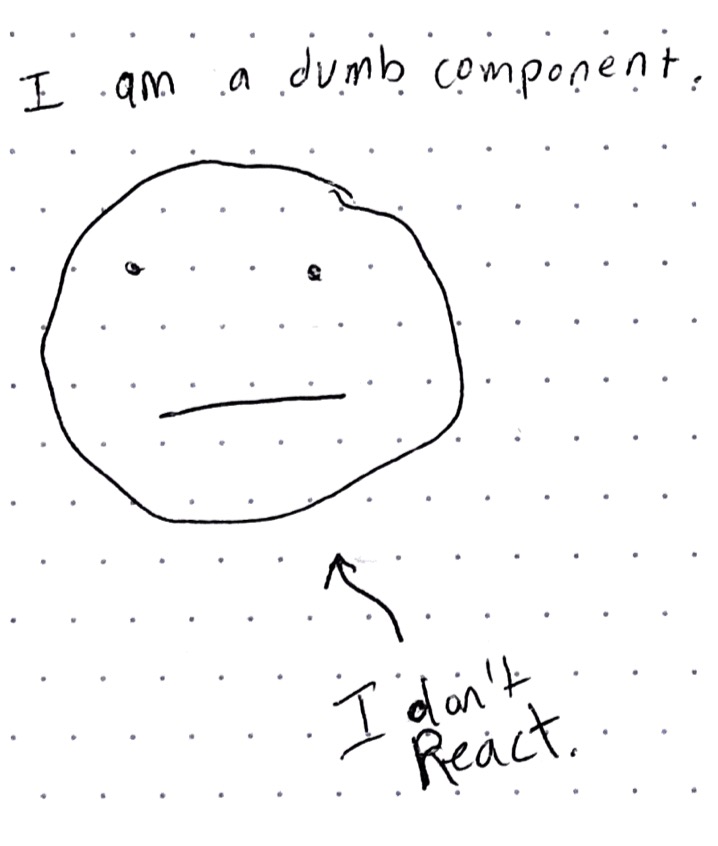 I am a dumb component.
I don't
React.